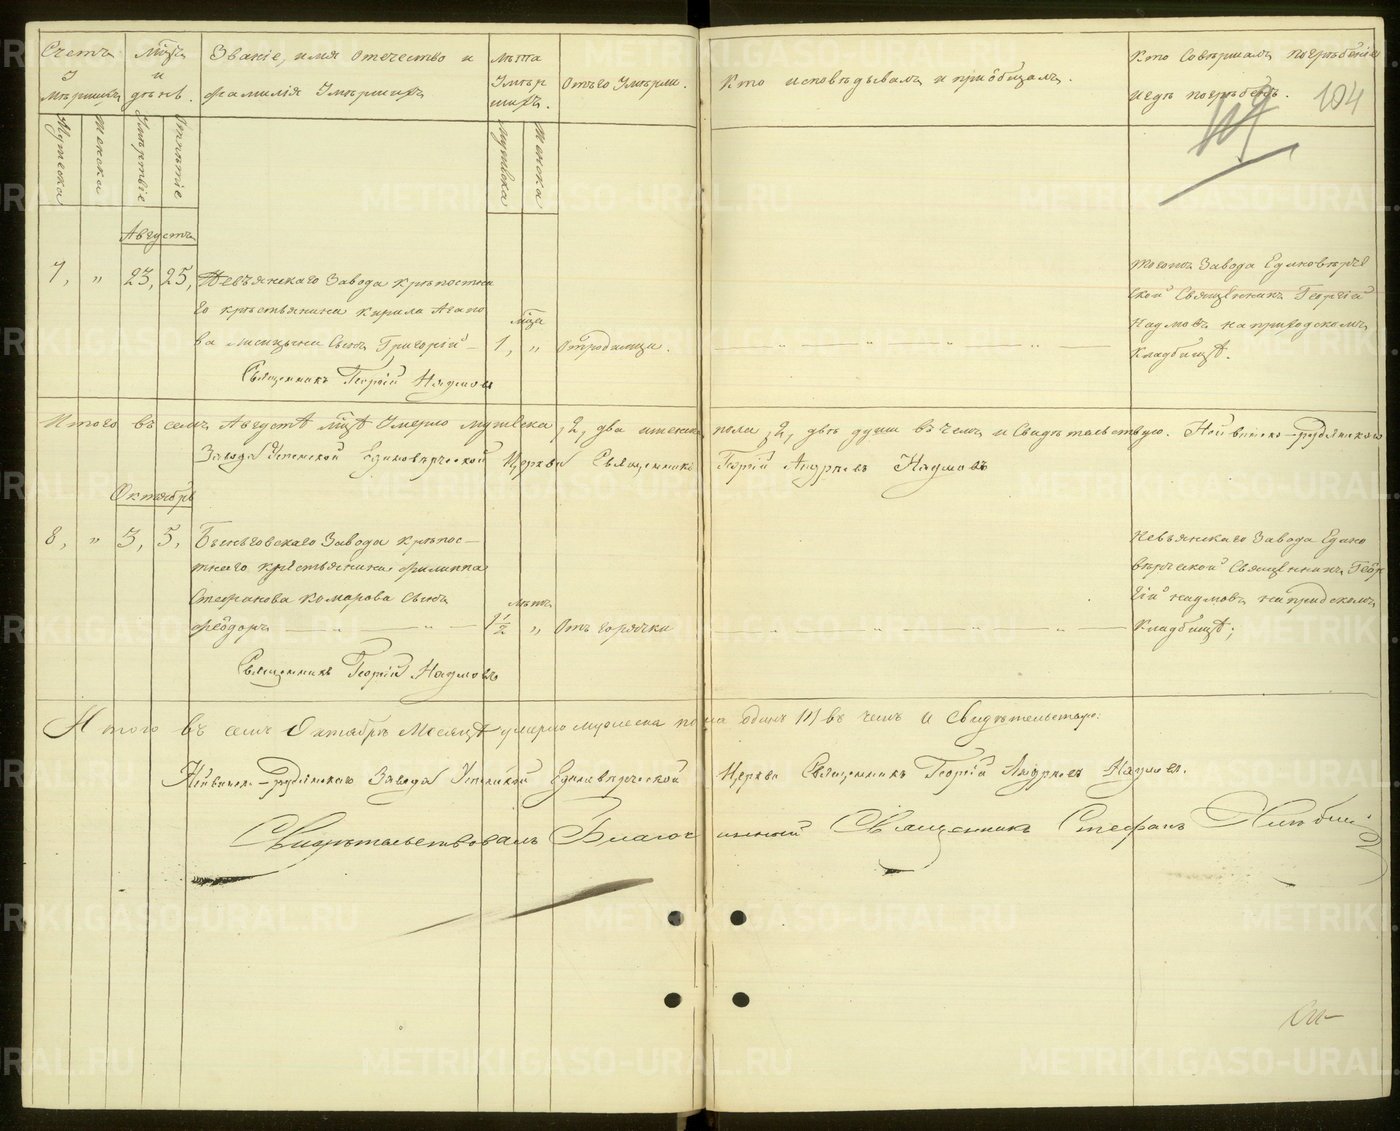 Счетъ
Умершихъ
Мѣсяцъ
и
день.
Званіе, имя отечество и
фамилія Умершихъ
Лѣта
Умер
шихъ.
Отъ чего Умерли.
Кто исповѣдывалъ и пріобщалъ.
Кто Совершалъ погребеніе
и гдѣ погребенъ.
104
Мужеска
Женска
Смертіе
Отпѣтіе
Мужеска
Женска
Августъ
7, " 23, 25, Невьянскаго Завода крѣпостна
го крестьянина Кирила Агапо
ва Лисицына сынъ Григорій
мца
1, " От родимца.
Священникъ Георгій Наумовъ
тогожъ Завода Единовѣрче
ской Священникъ Георгій
Наумовъ на приходскомъ
кладбищѣ.
Итого въ семъ Августѣ мцѣ Умерло мужеска 2, два женска пола 2, двѣ души въ чемъ и свидѣтельствую. Нейвинско-Рудянскаго
Завода Успенской Единовѣрческой Церкви Священникъ Георгій Андреевъ Наумовъ
Октябрь
8, " 3, 5, Быньговскаго Завода крѣпос-
тнаго крестьянина Филиппа
Стефанова Комарова сынъ
Феодоръ
лѣта
1 1/2 " Отъ горячки
Священникъ Георгій Наумовъ
Невьянскаго Завода Едино
вѣрческой Священникъ Геор
гій Наумовъ на придскомъ
Кладбищѣ;
Итого въ семъ Октябрѣ Месяцѣ умерло мужеска пола одинъ /1/ въ чемъ и Свидѣтельствую:
Нейвинско-Рудянскаго Завода Успенской Единовѣрческой Церкви Священникъ Георгій Андреевъ Наумовъ.
Свидѣтельствовалъ Благочинный Священникъ Стефанъ
METRIKI.GASO-URAL.RU